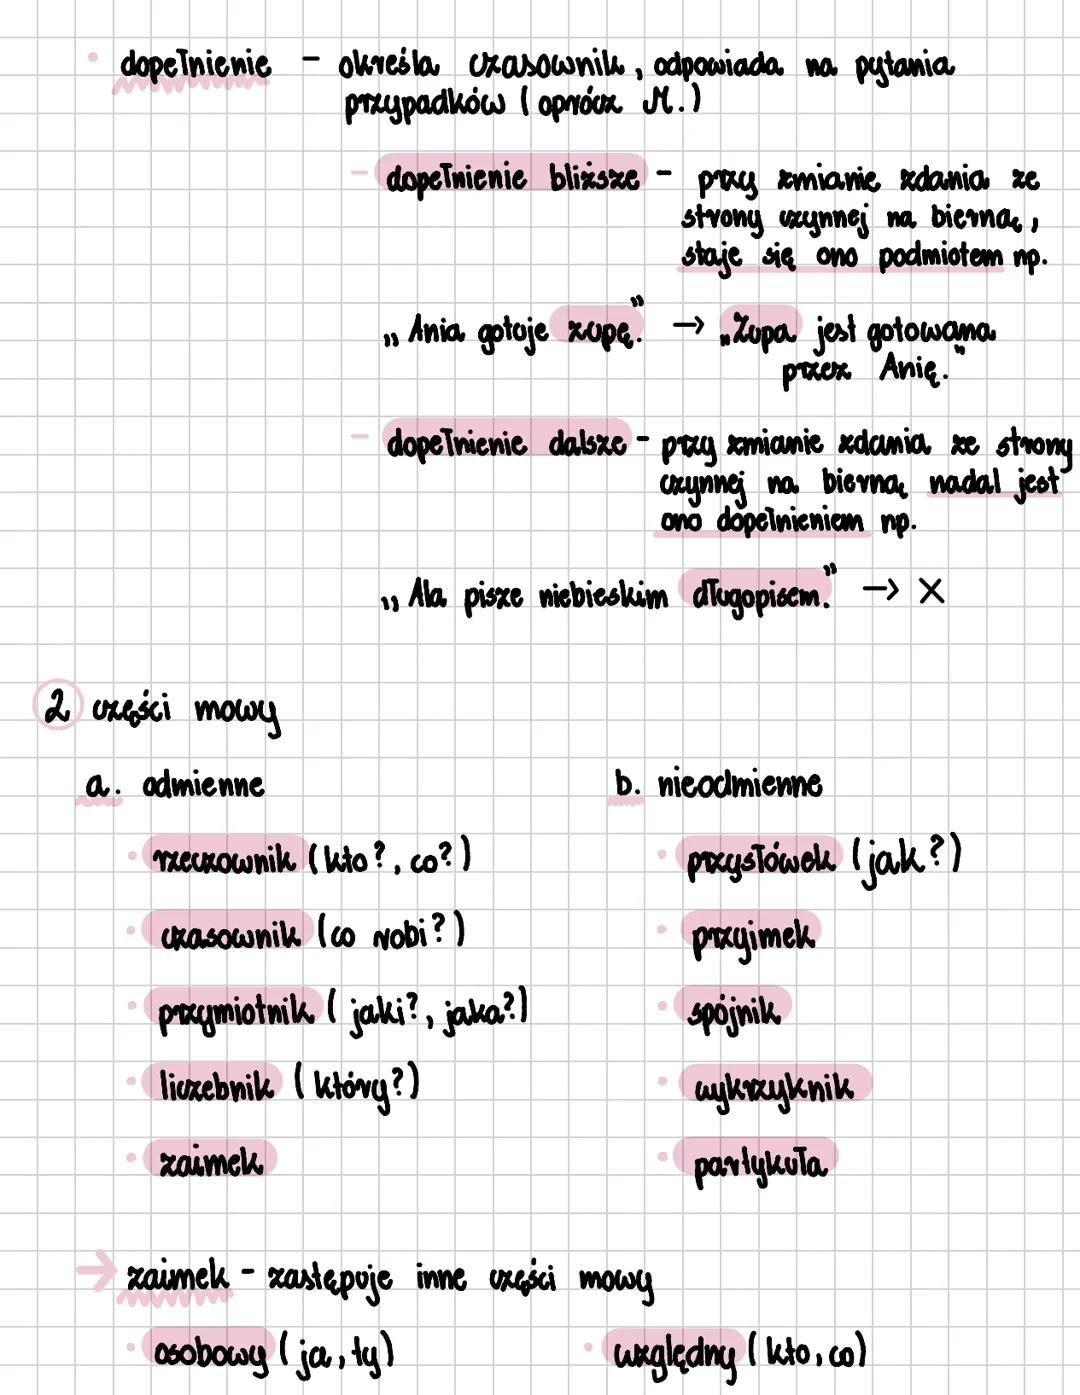 • dopełnienie – określa czasownik, odpowiada na pytania
przypadków (oprócz M.)
– dopełnienie bliższe – przy zmianie zdania ze
strony czynnej na bierną,
staje się ono podmiotem np.
„Ania gotuje zupę.” → „Zupa jest gotowana
przez Anię.”
– dopełnienie dalsze – przy zmianie zdania ze strony
czynnej na bierną nadal jest
ono dopełnieniem np.
„Ala pisze niebieskim długopisem.” → X
2 części mowy
a. odmienne
• rzeczownik (kto?, co?)
• czasownik (co robi?)
• przymiotnik (jaki?, jaka?)
• liczebnik (który?)
• zaimek
b. nieodmienne
• przysłówek (jak?)
• przyimek
• spójnik
• wykrzyknik
• partykuła
→ zaimek – zastępuje inne części mowy
• osobowy (ja, ty)
• względny (kto, co)